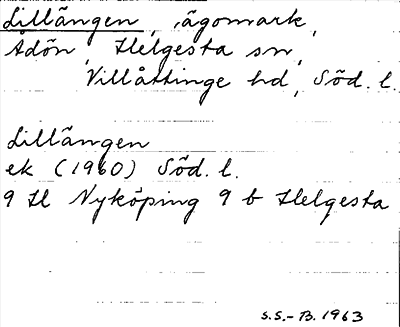 Lillängen, ägomark,
Ådön, Helgesta sn,
Villåttinge hd, Söd. l.
Lillängen
ek (1960) Söd. l.
9 H Nyköping 9 b Helgesta
S.S.-B. 1963